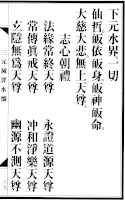 下元水界一切
仙哲皈依皈身皈神皈命
大慈大悲無上天尊
志心朝禮
法緣常終天尊 永證道源天尊
常傳真戒天尊 沖和淨樂天尊
玄隱無為天尊 幽源不測天尊
三元滅罪水懺